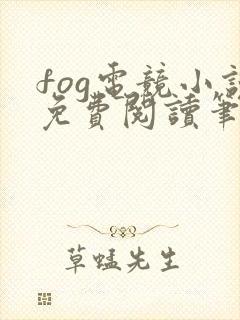 fog電競小說
免費閱讀筆
草蜢先生